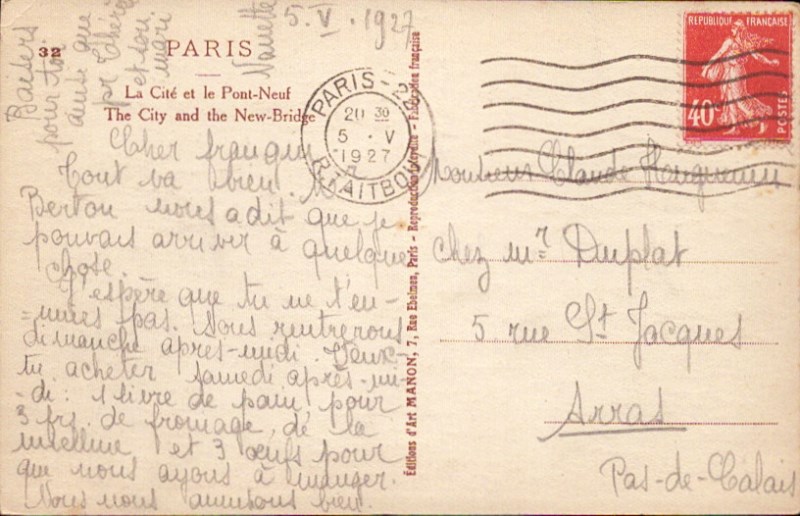 32
PARIS
5.V.1927
La Cité et le Pont-Neuf
The City and the New-Bridge
Cher
Tout va bien. Mr
Berton nous a dit que je
pouvais arriver à quelque
chose.
J'espère que tu ne t'en-
nuies pas. Nous rentrerons
dimanche après-midi. Veux-
tu acheter samedi après-mi-
di : 1 livre de pain, pour
3 frs. de fromage, de la
et 3 œufs pour
que nous ayons à manger.
Nous nous amusons bien.
Baisers
pour toi
ainsi que
pr
et son
mari
Nanette
Éditions d'Art MANON, 7, Rue Ebelmen, Paris - Reproduction interdite - Fabrication française
PARIS-
20 30
5 . V
1927
R. TAITBOUT
REPUBLIQUE FRANÇAISE
40c
POSTES
Monsieur Claude
chez Mr Duplat
5 rue St Jacques
Arras
Pas-de-Calais